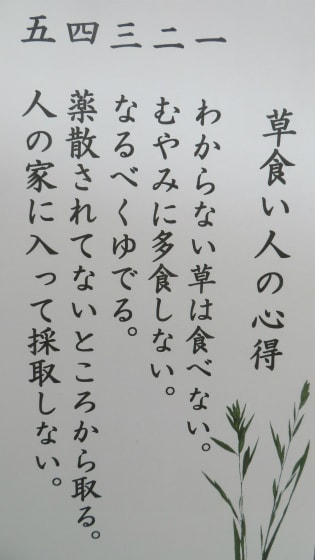 草食い人の心得
一 わからない草は食べない。
二 むやみに多食しない。
三 なるべくゆでる。
四 薬散されてないところから取る。
五 人の家に入って採取しない。